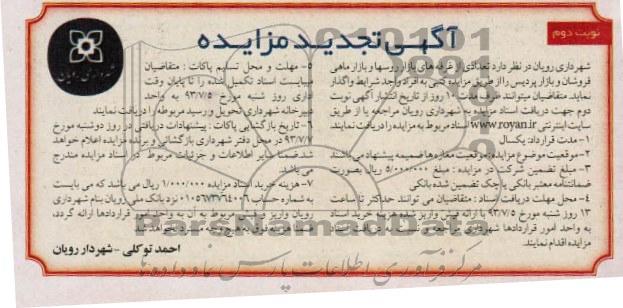 نوبت دوم
آگهی تجدید مزایده
شهرداری رویان
شهرداری رویان در نظر دارد تعدادی از غرفه های بازار روسها و بازار ماهی
فروشان و بازار پردیس را از طریق مزایده کتبی به افراد واجد شرایط واگذار
نماید. متقاضیان میتوانند ظرف مدت ۱۰ روز از تاریخ انتشار آگهی نوبت
دوم جهت دریافت اسناد مزایده به شهرداری رویان مراجعه یا از طریق
سایت اینترنتی www.royan.ir اسناد مربوط به مزایده را دریافت نمایند.
۱- مدت قرارداد: یکسال
۲- موقعیت موضوع مزایده: موقعیت مغازه ها ضمیمه پیشنهاد می باشند
۳- مبلغ تضمین شرکت در مزایده : مبلغ ۵/۰۰۰/۰۰۰ ریال بصورت
ضمانتنامه معتبر بانکی یا چک تضمین شده بانکی
۴- محل مهلت دریافت اسناد : متقاضیان می توانند حداکثر تا ساعت
۱۳ روز شنبه مورخ ۹۳/۷/۵ با ارائه فیش واریز شده هزینه خرید اسناد
به واحد امور قراردادها شهرداری مراجعه و نسبت به دریافت اسناد
مزایده اقدام نمایند.
۵- مهلت و محل تسلیم پاکات : متقاضیان
میبایست اسناد تکمیل شده را تا پایان وقت
اداری روز شنبه مورخ ۹۳/۷/۵ به واحد
دبیرخانه شهرداری تحویل و رسید مربوطه را دریافت نمایند
۶- تاریخ بازگشایی پاکات : پیشنهادات دریافتی در روز دوشنبه مورخ
۹۳/۷/۷ در محل دفتر شهرداری بازگشائی و برنده مزایده اعلام خواهد
شد ضمنا سایر اطلاعات و جزئیات مربوط در اسناد مزایده مندرج
می باشد.
۷- هزینه خرید اسناد مزایده ۱/۰۰۰/۰۰۰ ریال می باشد که می بایست
به شماره حساب نزد بانک ملی رویان بنام شهرداری
رویان واریز و فیش مربوط به آن به واحد امور قراردادها ارائه گردد،
ضمنا هزینه فوق به هیچ وجه مسترد نخواهد شد
احمد توکلی - شهردار رویان
ParsNamadData
مرکز فرآوری اطلاعات پارس نماد داده ها